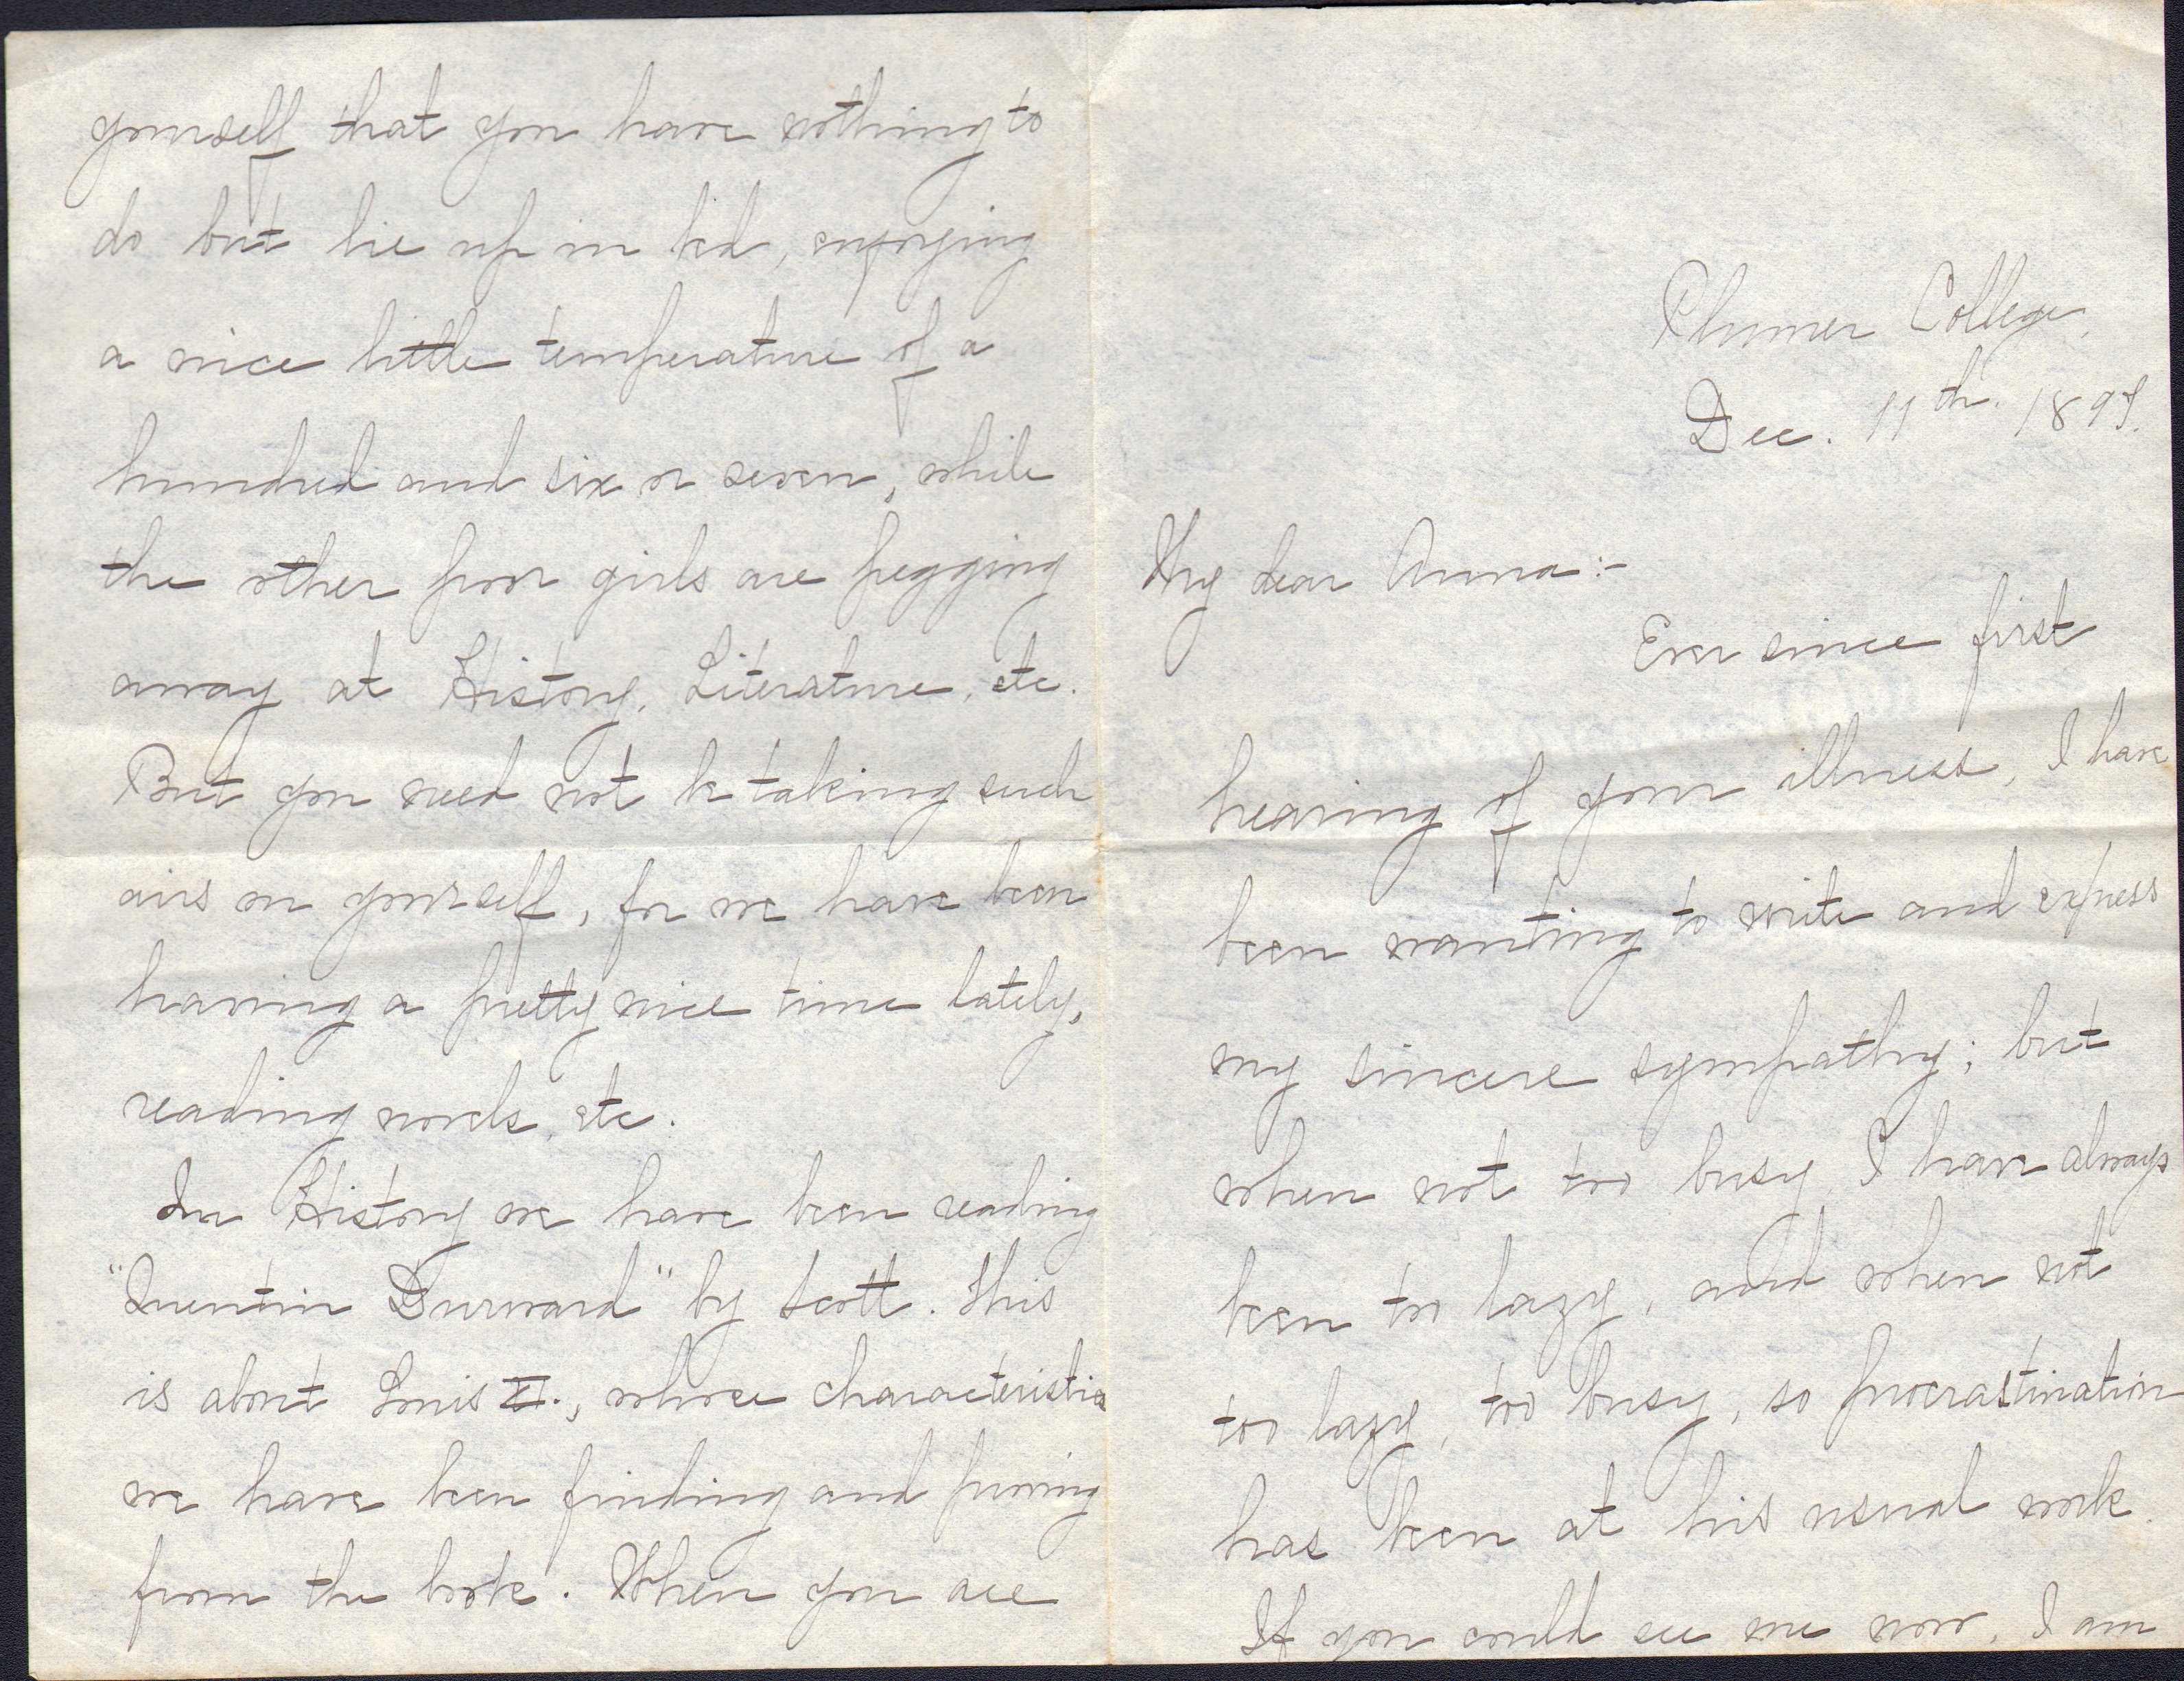 Plumer College,
Dec. 11th. 1897.
My dear Anna:-
Ever since first
hearing of your illness, I have
been wanting to write and express
my sincere sympathy; but
when not too busy, I have always
been too lazy, and when not
too lazy, too busy, so procrastination
has been at his usual work.
If you could see me now, I am
yourself that you have nothing to
do but lie up in bed, enjoying
a nice little temperature of a
hundred and six or seven, while
the other poor girls are pegging
away at History, Literature, etc.
But you need not be taking such
airs on yourself, for we have been
having a pretty nice time lately,
reading novels, etc.
In History we have been reading
"Quentin Durward" by Scott. This
is about Louis XI., whose characteristics
we have been finding and proving
from the book. When you are